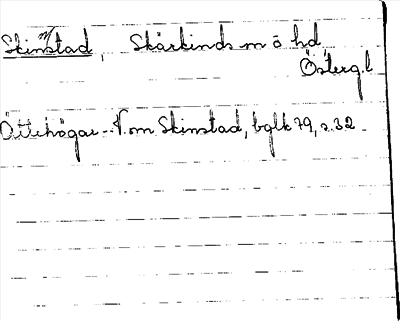 Skinstad, Skärkinds m o hd,
Österg.l
Ättehögar - V. om Skinstad, bglk 79, s. 32.